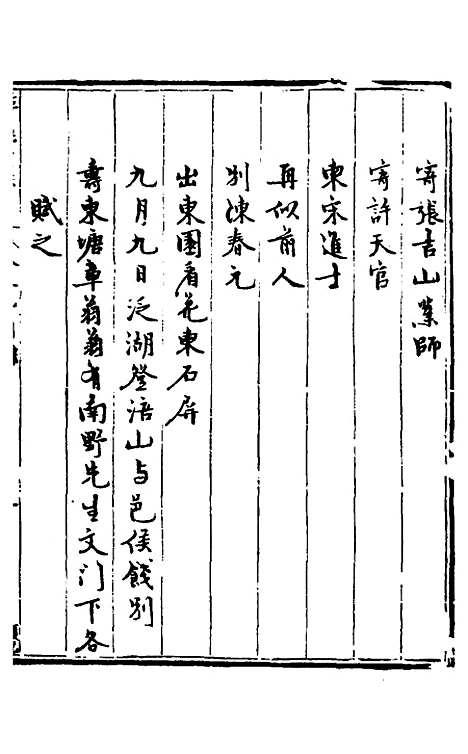 寄張吉山業師
寄許天官
東宋進士
再似前人
別陳春元
出東園看花東石屏
九月九日泛湖登涪山与邑侯餞別
壽東塘車翁翁有南野先生文门下各
賦之